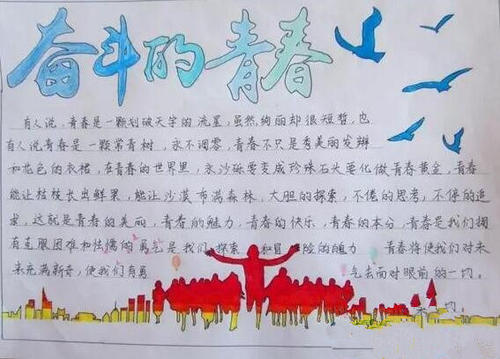 奋斗的青春
有人说,青春是一颗划破天宇的流星,虽然绚丽却很短暂,也
有人说青春是一颗常青树,永不调零,青春不只是秀美的发辫
和花色的衣裙,在青春的世界里,永沙砾要变成珍珠石头要化做青春黄金,青春
能让枯枝长出鲜果,能让沙漠布满森林,大胆的探索,不倦的思考,不停的追
求,这就是青春的美丽,青春的魅力,青春的快乐,青春的本分,青春是我们拥
有克服困难和怯懦的勇气是我们探索和冒险的魄力 青春将使我们对未
来充满新奇,使我们有勇气去面对眼前的一切。